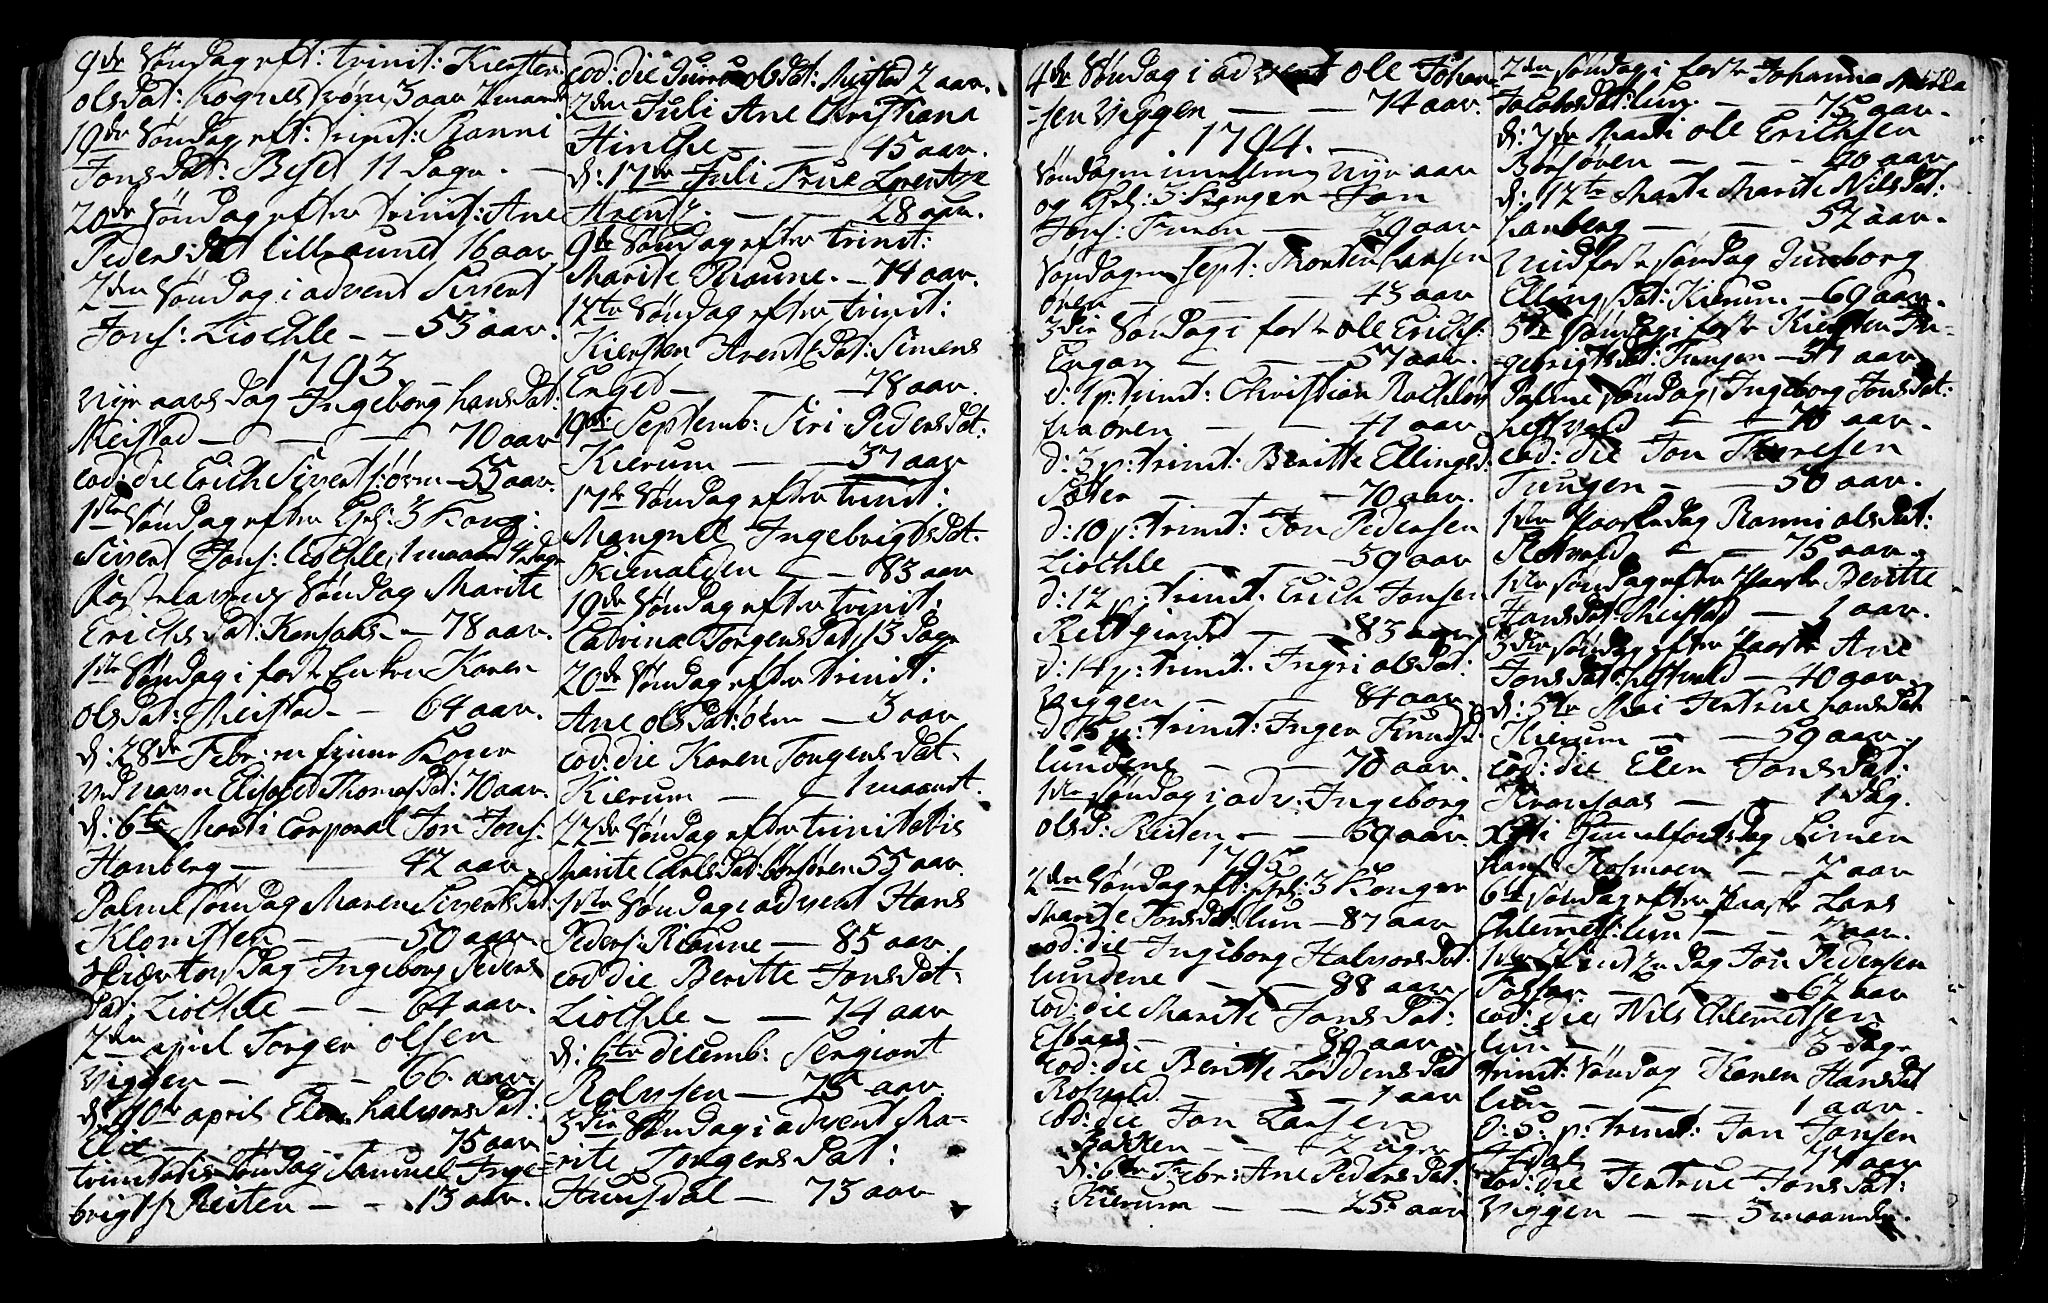 9de Søndag eft: trinit: Kiersten
olsdat: Rognes ørn, 3 aar 7 maan
19de Søndag eft: trinit: Ranni
Jonsdat: Byst 11 Dage.
20de Søndag efter trinit: Ane
Pedersdat Lillesund 16 aar
2den Søndag i advent Sivert
Jons: Liøchle - - 53 aar.
1793
Nyt aars dag Ingeborg hansdat:
Meistad - - - 70 aar
eod: die Erich Sivertsørn - 55 aar.
1ste Søndag efter Hel: 3 Kong:
Sivert Jons: Liøchle, 1 maaned 4 Dage
Fastelavens Søndag Marite
Erichsdat: Konsaas - 78 aar.
1ste Søndag i faste Enken Karen
olsdat: Meistad - - 64 aar.
d: 28de Febr: en finne Kone
ved navn Elisabet Thomasdat: 70 aar.
d: 6te Marti Corporal Jon Jons:
Hanberg - - 42 aar.
Palme søndag Maren Sivertsdat
Klomsten - - 50 aar.
Skiærtorsdag Ingeborg Peders
dat: Liøchle - - 64 aar.
2den april Torger olsen
Viggen - - 66 aar.
d: 10de april Elen halvorsdat:
Elie - - 75 aar
trinitatis Søndag Samuel Inge
brigts Reiten - - 13 aar.
eod: die Guruolsdat: Meistad 2 aar.
2den Juli Ane Christiana
Hinche - - 45 aar.
d: 17de Juli Frue Lorentze
Arentz. - - 28 aar.
9de Søndag efter trinit:
Marite Risaune. - 74 aar.
12te Søndag efter trinit:
Kiersten Arentsdat: Simens
Enget - - 78 aar.
19de Septemb: Siri Pedersdat:
Kierum - - 37 aar
17de Søndag efter trinit:
Mangnel Ingebrigtsdat.
Skienalden - - 83 aar
19de Søndag efter trinit:
Catrina Torgersdat, 13 Dage
20de Søndag efter trinit:
Ane olsdat: ørn - 3 aar
eod: die Karen Torgersdat.
Kierum - - 1 maanet.
22de Søndag efter trinitatis
Marite Carlsdat: børsøren 55 aar.
1ste Søndag i advent Hans
Peders: Risaune - 85 aar.
eod die Beritte Jonsdat.
Liøchle - - 74 aar
d: 6te decemb: Sergiant
Rolvsen - 75 aar
3die Søndag i advent Ma-
rite Torgersdat:
Hunsdal - 73 aar
4de Søndag i advent ole Johan-
-sen Viggen - - 74 aar.
1794.
Søndagen imellem Nyt aar
og Hel: 3 Konger Jon
Jons: - - 29 aar
Søndagen Sept: Morten hansen
ören - - - 43 aar
3die Søndag i faste ole Erichs:
Engan - - - 57 aar.
d: 1 p: trinit: Christian Rochlos
haaren - - - 41 aar.
d: 3 p: trinit: Beritte Ellingsd:
Sæter - - 70 aar.
d: 10 p: trinit: Jon Pedersen
Liochle - - 59 aar.
d: 12 p: trinit: Erich Jonsen
Rettgierdet - - 83 aar
d: 14 p: trinit: Ingri olsdat:
Viggen - - 84 aar.
d 15 p: trinit: Inger Knudsd:
lundene - - 70 aar.
1ste Søndag i adv: Ingeborg
olsd: Reiten - - 59 aar.
1795
2den Søndag eft: Hel: 3 Konger
Marite Jonsdat: lun - 87 aar
eod: die Ingeborg Halvorsdat.
lundene - - 88 aar
eod: die Marite Jonsdat:
Elsaas - - 80 aar.
eod: die Beritte Loddensdat
Rosvold - - 1 aar
eod: die Jon Larsen
Bakken - - 2 uger
d: 6te Febr: Ane Pedersdat.
Kierum - - 25 aar
2den søndag i faste Johanna
Jacobsdat: lun. - - 75 aar.
d: 7de Marti ole Erichsen
Børsøren - - - 40 aar
d: 12te Martii Marite Nilsdat:
hanberg - - 52 aar.
Midfaste søndag Ingeborg
Ellingsdat: Kierum - 69 aar.
5te søndag i faste Kiersten In-
-gebrigtsdat: Tungen - 57 aar
Palme søndag, Ingeborg Jonsdat:
hestvold - - 70 aar.
eod: die Jon Thoresen
Tungen - - 50 aar.
1ste Paaskedag Ranni olsdat:
Rotvold - - 75 aar.
1ste søndag efter Paaske Beritte
Hansdat: Meistad - 1 aar.
3die søndag efter Paaske Ane
Jonsdat: hestvold - 40 aar.
d: 5te Mai Jentrue hansdat
Kierum - - 59 aar.
eod: die Elen Jonsdat:
Kronsaas - - 1 dag.
Xsti Himmelfartsdag Simen
hans: Rosmoen - - 2 aar
6te søndag efter Paaske Lars
Chlemets: lun - - 2 aar.
1ste Pindzedag Jon Pedersen
Fossan - - 62 aar
eod: die Nils Chlemetsen
lun - - - 3 dage
trinit: Søndag Karen Hansdat
lun - - - 1 aar.
D: 5 p: trinit: Jon Jonsen
- - - 44 aar
eod: die Jentrue Jonsdat:
Viggen - - 3 maaneder.